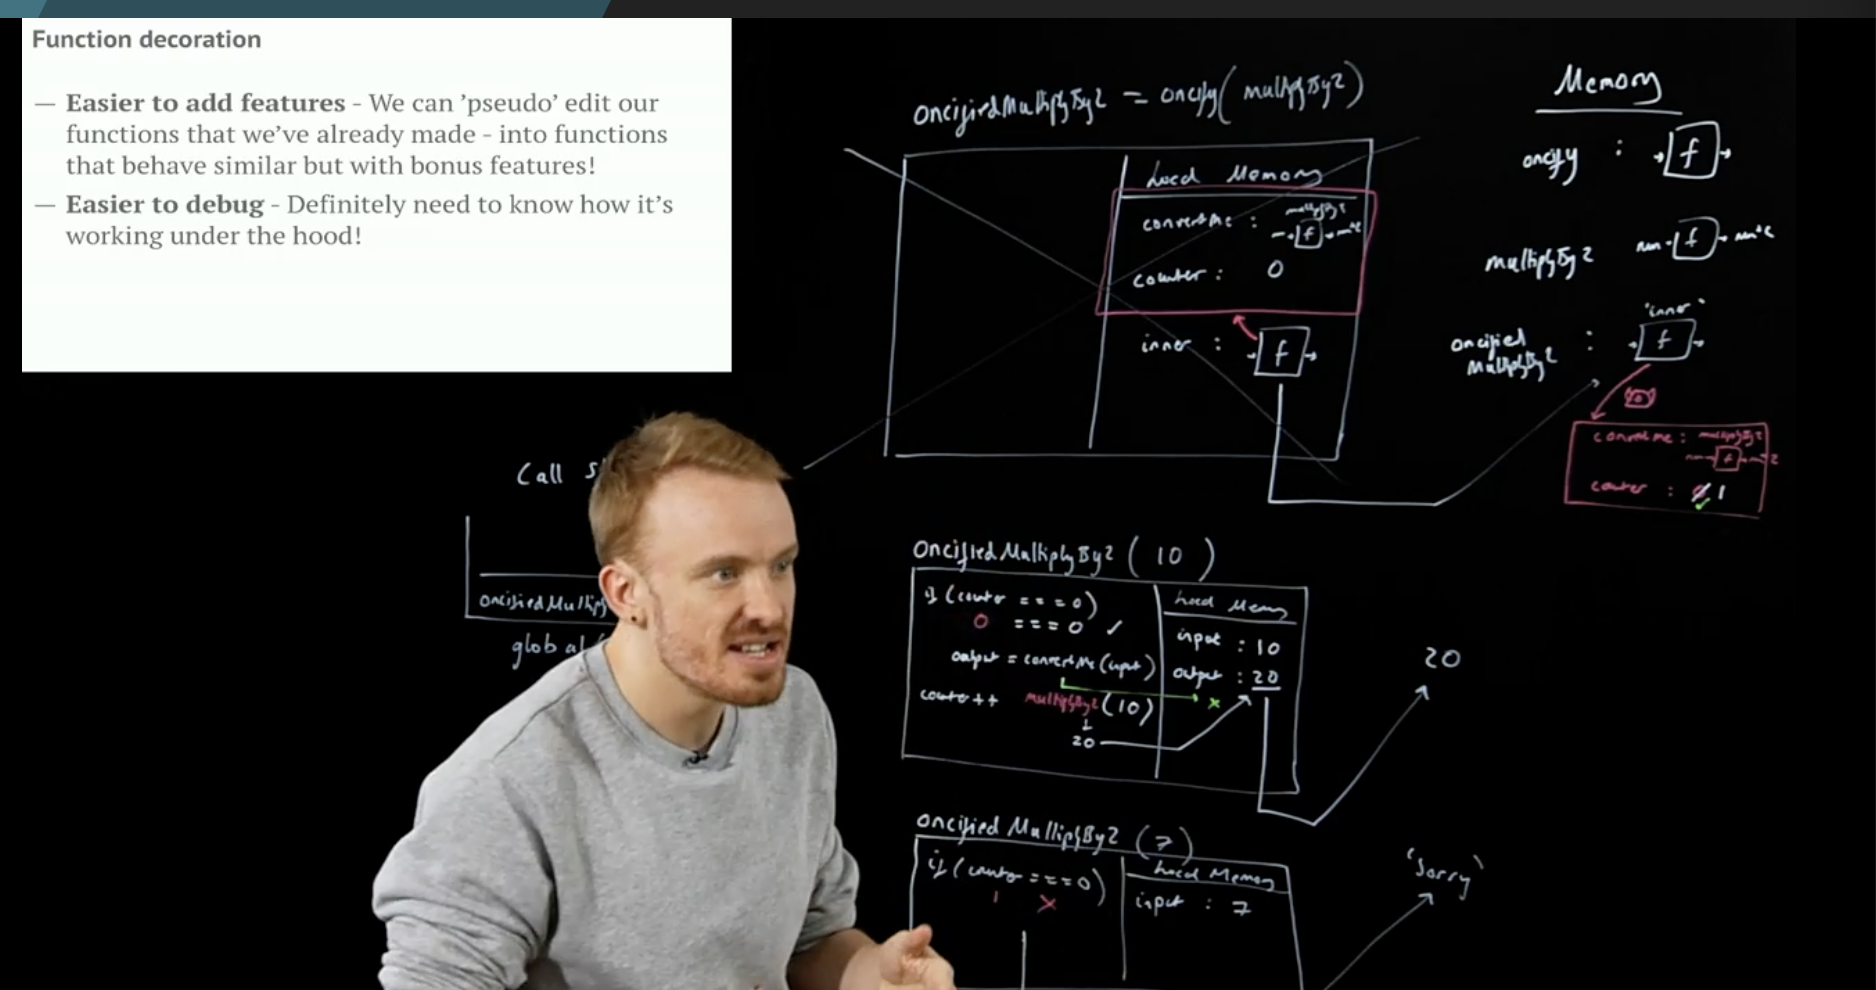 Function decoration
— Easier to add features - We can ’pseudo’ edit our
functions that we’ve already made - into functions
that behave similar but with bonus features!
— Easier to debug - Definitely need to know how it’s
working under the hood!
oncifiedMultiplyBy2 = oncify( multiplyBy2 )
Local Memory
convertMe : multiplyBy2
f
counter : 0
inner : f
Memory
oncify : f
multiplyBy2 f
"inner"
oncified : f
MultiplyBy2
convertMe : multiplyBy2
f
counter : 0 1
Call
oncifiedMultip
global
OncifiedMultiplyBy2 ( 10 )
if (counter === 0)
0 === 0 ✓
output = convertMe (input)
counter++ multiplyBy2 (10)
20
Local Memory
input : 10
output : 20
x
20
Oncified MultiplyBy2 ( 7 )
if ( counter === 0)
1 x
Local Memory
input : 7
'Sorry'